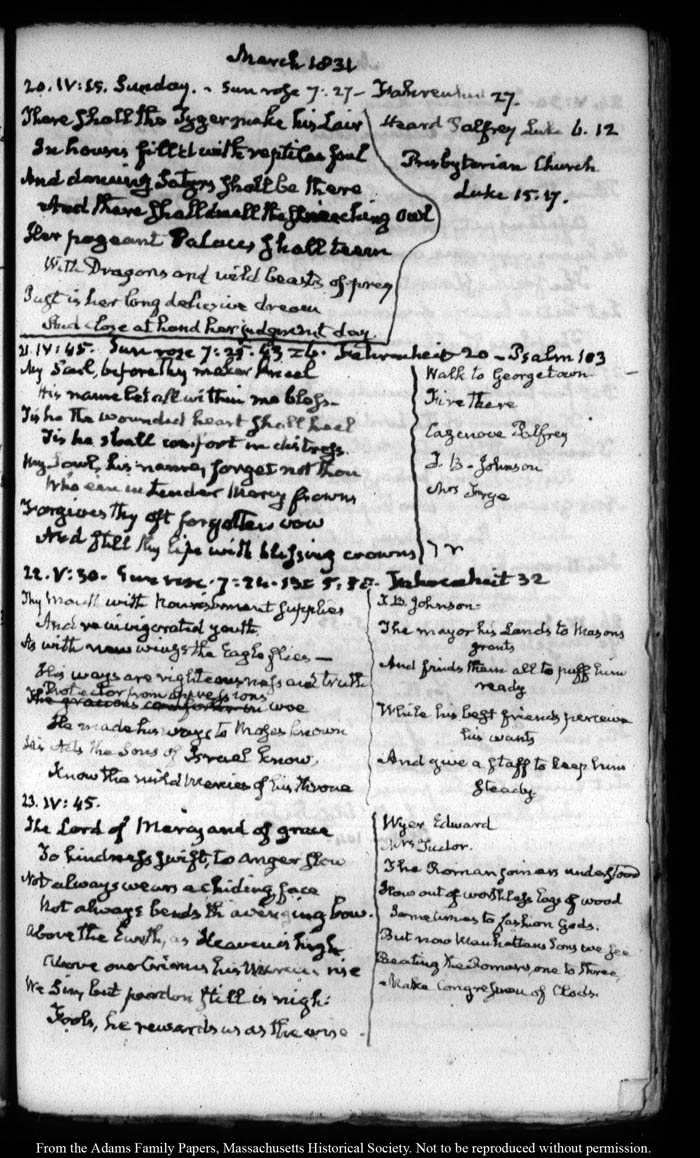 March 1831
20. IV:15. Sunday. Sun rose 7:27 – Fahrenheit 27.
There shall the Tyger make his Lair
In houses fill'd with reptiles foul
And dancing Satyrs shall be there
And there shall dwell the shrieching Owl
Her pageant Palaces shall teem
With Dragons and wild beasts of prey
Past is her long delusive dream
And close at hand her judgment day.
Heard Palfrey Luke 6. 12
Presbyterian Church
Luke 15. 17.
21. IV:45. Sun rose 7:25. Fahrenheit 20 – Psalm 103
My Soul, before thy maker kneel
His name let all within me bless –
Tis he the wounded heart shall heal
Tis he shall comfort in distress.
My Soul, his name, forget not thou
Who e'en in tender Mercy frowns
Forgives thy oft forgotten vow
And still thy life with blessing crowns
Walk to Georgetown. –
Fire there
Cazenove Palfrey
J. B. Johnson
Mrs
22. V:30. Sun rose 7:24. Fahrenheit 32
Thy Mouth with nourishment supplies
And re invigorated youth,
As with new wings the Eagle flies –
His ways are righteousness and truth
Protector from oppressions
The gracious comforter in woe
He made his ways to Moses known
His Acts the Sons of Israel know,
Know the mild Mercies of his throne
J. B. Johnson.
The mayor his Lands to Masons
grants
And finds them all to puff him
ready
While his best friends perceive
his wants
And give a staff to keep him
steady
23. IV:45.
The Lord of Mercy and of grace
To kindness swift, to anger slow
Not always wears a chiding face
Not always bends th' avenging bow.
Above the Earth, as Heaven is high
Above our Crimes his Mercies rise
We Sin, but pardon still is nigh:
Fools, he rewards us as the wise.
Wyer Edward
Mrs Tudor.
The Roman joiners understood
How out of worthless logs of wood
Sometimes to fashion Gods.
But now Manhattans Sons we see
Beating the Romans one to three,
Make Congressmen of Clods.
From the Adams Family Papers, Massachusetts Historical Society. Not to be reproduced without permission.